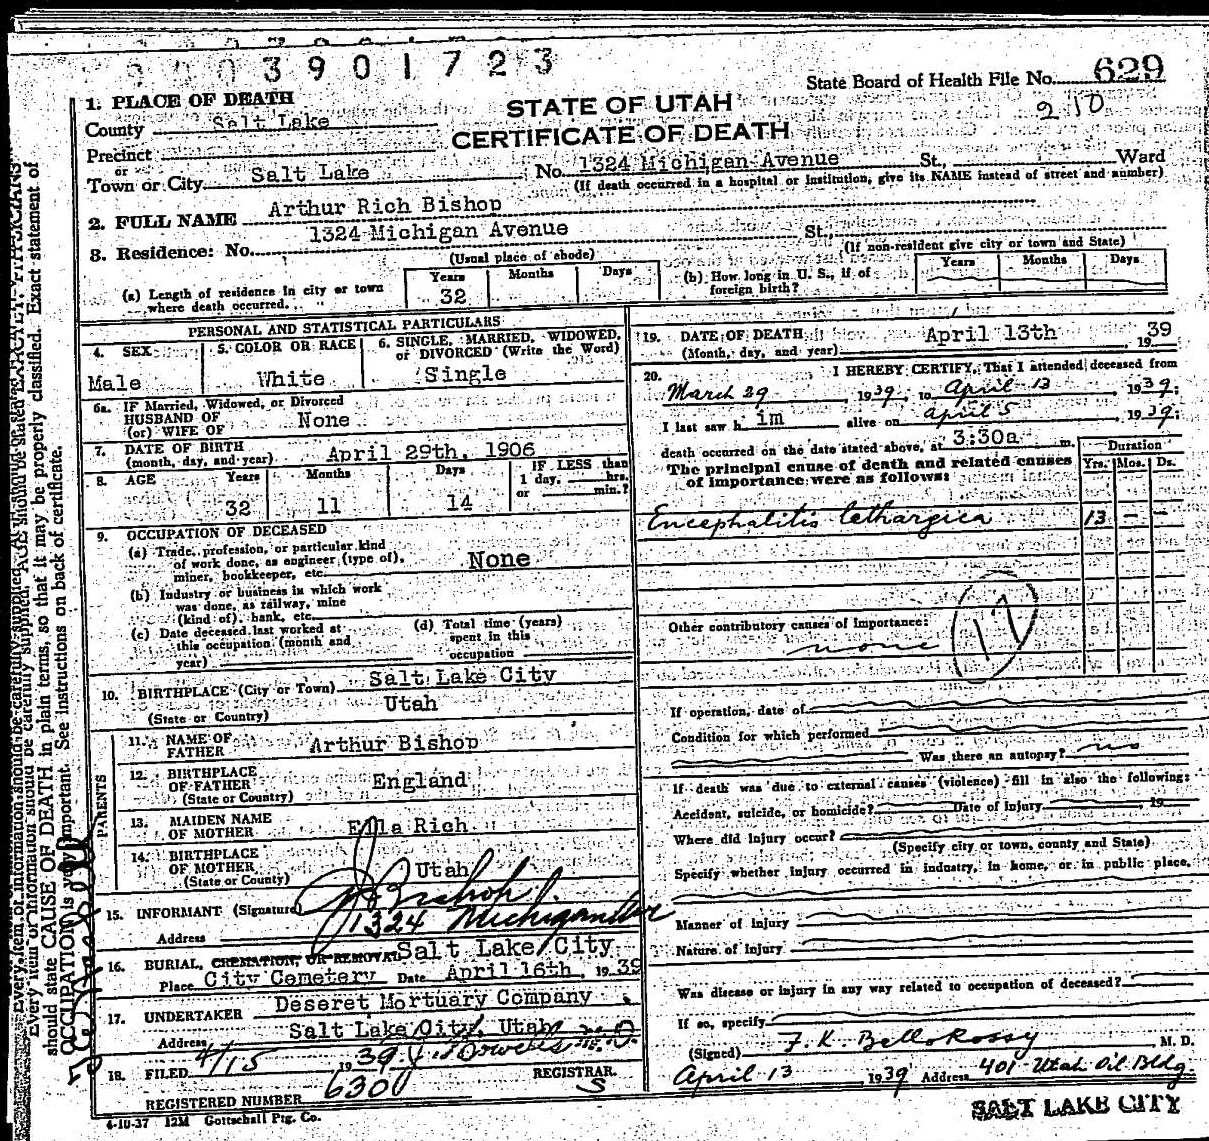 3901723
State Board of Health File No. 629
210
STATE OF UTAH
CERTIFICATE OF DEATH
1. PLACE OF DEATH
County Salt Lake
Precinct
or
Town or City Salt Lake No. 1324 Michigan Avenue St., Ward
(If death occurred in a hospital or institution, give its NAME instead of street and number)
2. FULL NAME Arthur Rich Bishop
3. Residence: No. 1324 Michigan Avenue St.,
(Usual place of abode) (If non-resident give city or town and State)
(a) Length of residence in city or town where death occurred. Years 32 Months Days
(b) How long in U. S., if of foreign birth? Years Months Days
PERSONAL AND STATISTICAL PARTICULARS
4. SEX Male
5. COLOR OR RACE White
6. SINGLE, MARRIED, WIDOWED, or DIVORCED (Write the Word) Single
6a. IF Married, Widowed, or Divorced
HUSBAND OF
(or) WIFE OF None
7. DATE OF BIRTH
(month, day, and year) April 29th, 1906
8. AGE Years 32 Months 11 Days 14 IF LESS than 1 day, hrs. or min.?
9. OCCUPATION OF DECEASED
(a) Trade, profession, or particular kind
of work done, as engineer (type of),
miner, bookkeeper, etc. None
(b) Industry or business in which work
was done, as railway, mine
(kind of), bank, etc.
(c) Date deceased last worked at
this occupation (month and
year)
(d) Total time (years)
spent in this
occupation
10. BIRTHPLACE (City or Town) Salt Lake City
(State or Country) Utah
PARENTS
11. NAME OF FATHER Arthur Bishop
12. BIRTHPLACE OF FATHER (State or Country) England
13. MAIDEN NAME OF MOTHER Ella Rich
14. BIRTHPLACE OF MOTHER (State or County) Utah
15. INFORMANT (Signature) Bishop
Address 1324 Michigan Ave
16. BURIAL, CREMATION, OR REMOVAL Salt Lake City
Place City Cemetery Date April 16th, 1939
17. UNDERTAKER Deseret Mortuary Company
Address Salt Lake City, Utah
18. FILED 4/15 1939 M.D.
REGISTRAR.
REGISTERED NUMBER 630
4-10-37 12M Gottschall Ptg. Co.
19. DATE OF DEATH
(Month, day, and year) April 13th, 1939
20. I HEREBY CERTIFY, That I attended deceased from
March 29, 1939, to April 13 1939;
I last saw him alive on April 5 1939;
death occurred on the date stated above, at 3:30a m.
The principal cause of death and related causes
of importance were as follows:
Duration
Yrs. Mos. Ds.
Encephalitis lethargica 13 – –
Other contributory causes of importance:
none
17
If operation, date of
Condition for which performed
Was there an autopsy? no
If death was due to external causes (violence) fill in also the following:
Accident, suicide, or homicide? Date of injury , 19
Where did injury occur?
(Specify city or town, county and State)
Specify whether injury occurred in industry, in home, or in public place.
Manner of injury
Nature of injury
Was disease or injury in any way related to occupation of deceased?
If so, specify
(Signed) F. K. M. D.
April 13, 1939 Address 401 Utah Oil Bldg.
SALT LAKE CITY
should state CAUSE OF DEATH in plain terms, so that it may be properly classified. Exact statement of
OCCUPATION is very important. See instructions on back of certificate.